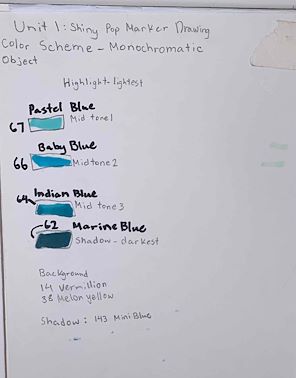 Unit 1: Shiny Pop Marker Drawing
Color Scheme - Monochromatic
Object
Highlight-lightest
Pastel Blue
67 Mid tone 1
Baby Blue
66 Midtone 2
Indian Blue
64 Mid tone 3
62 Marine Blue
Shadow-darkest
Background
14 Vermillion
38 Melon yellow
Shadow: 143 Mint Blue